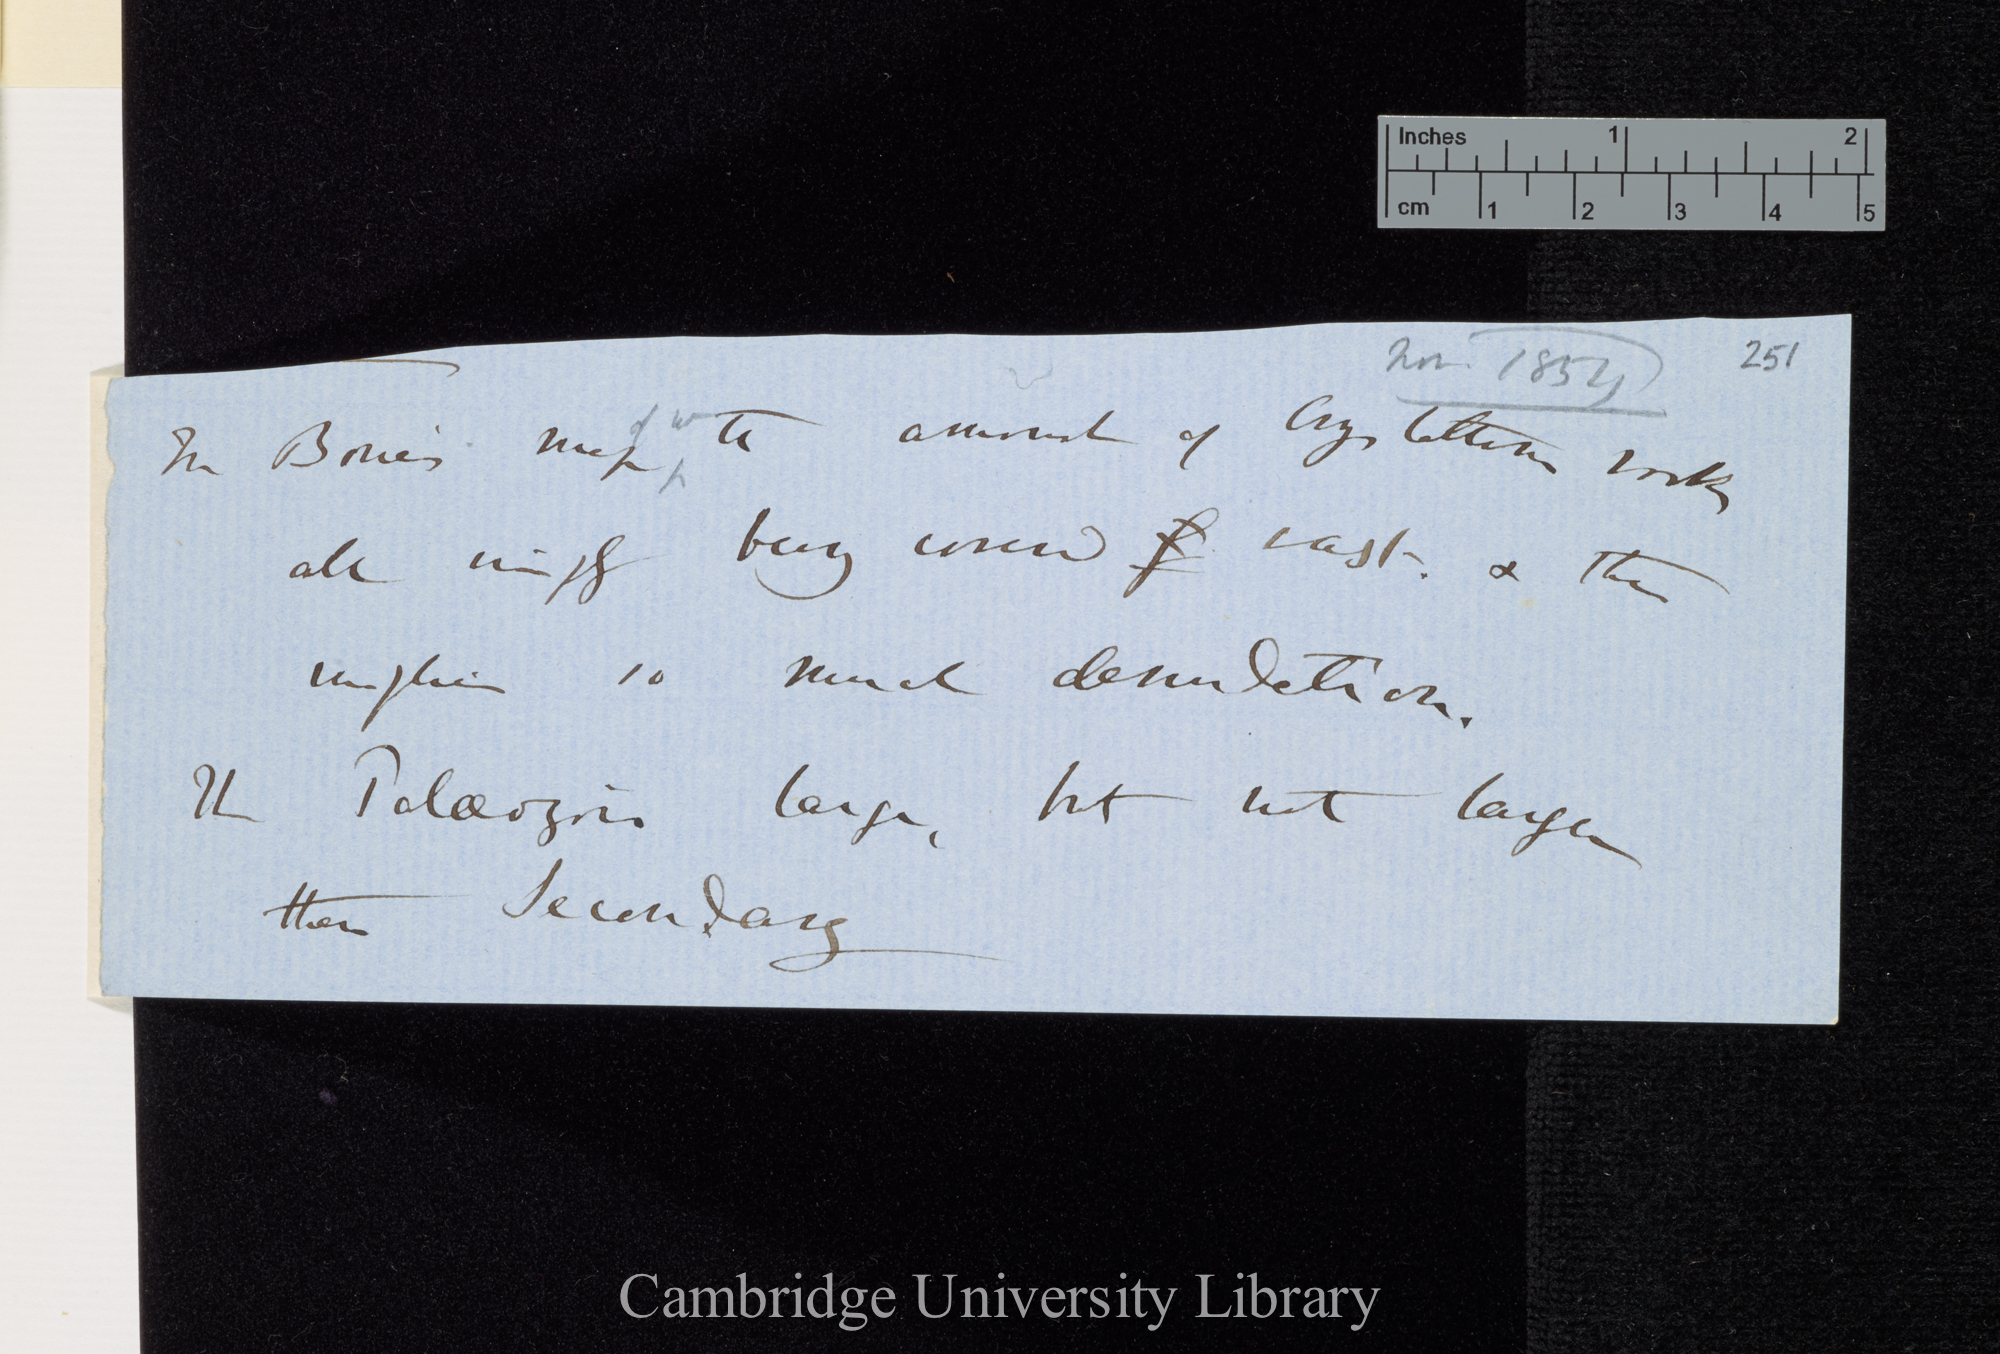 Inches 1 2
cm 1 2 3 4 5
Nov. 1854
251
In Boué's map of W the amount of Crystalline rocks
all being covered vast. & this
implies so much denudation.
The Palæozoic large, but not larger
than Secondary
Cambridge University Library